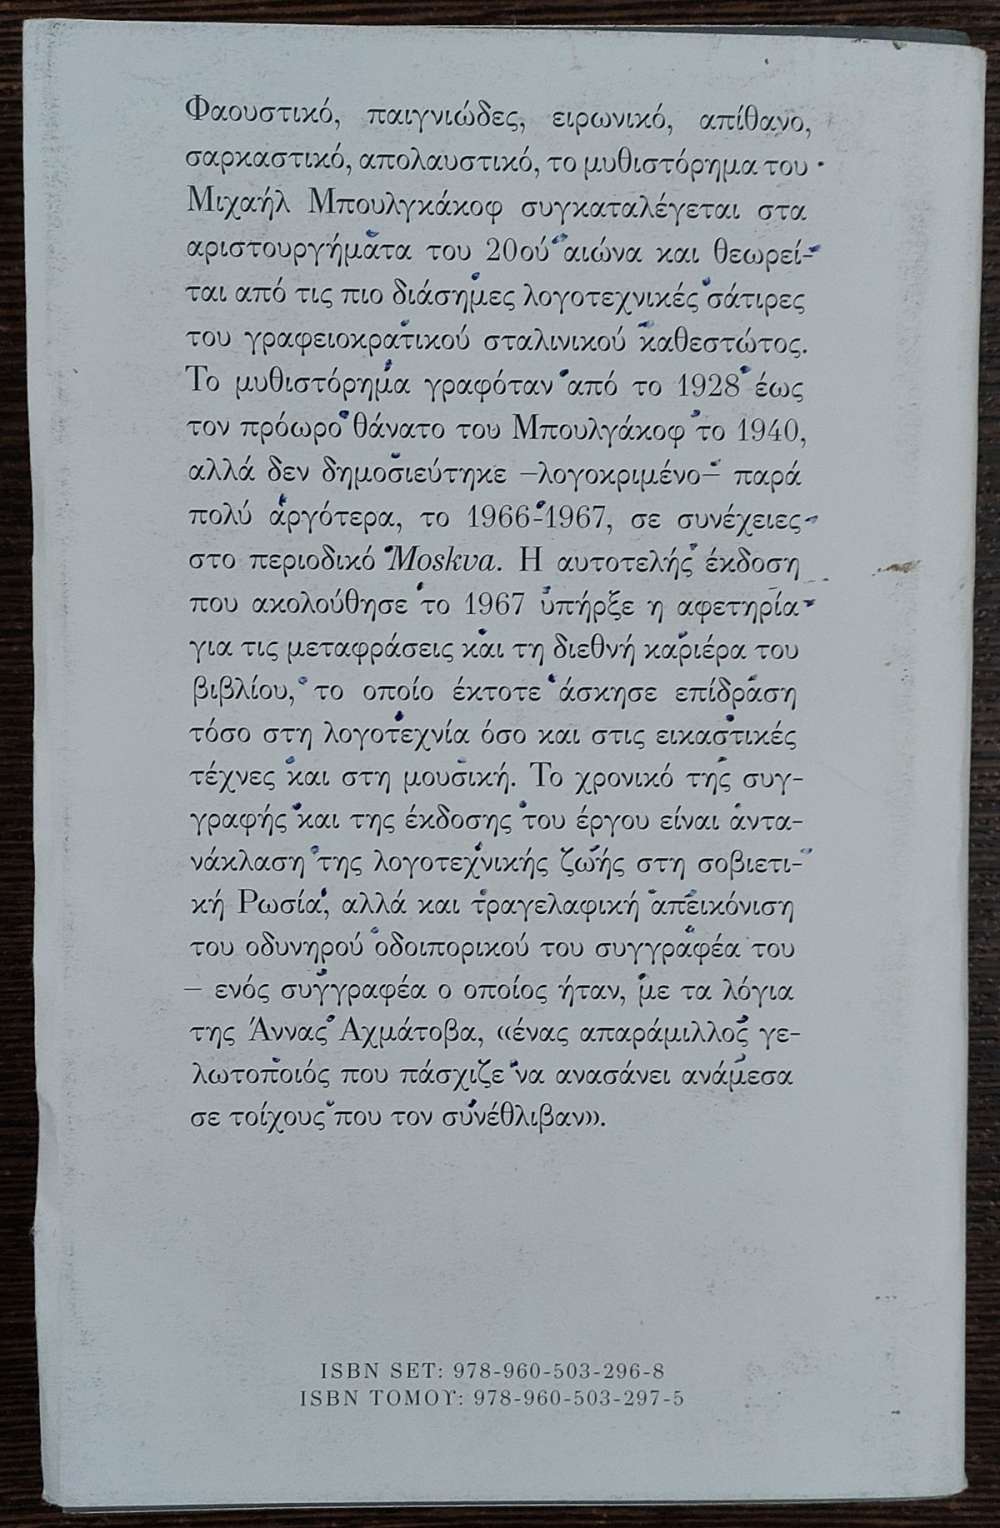 Φαουστικό, παιγνιώδες, ειρωνικό, απίθανο,
σαρκαστικό, απολαυστικό, το μυθιστόρημα του
Μιχαήλ Μπουλγκάκοφ συγκαταλέγεται στα
αριστουργήματα του 20ού αιώνα και θεωρεί-
ται από τις πιο διάσημες λογοτεχνικές σάτιρες
του γραφειοκρατικού σταλινικού καθεστώτος.
Το μυθιστόρημα γραφόταν από το 1928 έως
τον πρόωρο θάνατο του Μπουλγάκοφ το 1940,
αλλά δεν δημοσιεύτηκε –λογοκριμένο– παρά
πολύ αργότερα, το 1966-1967, σε συνέχειες
στο περιοδικό Moskva. Η αυτοτελής έκδοση
που ακολούθησε το 1967 υπήρξε η αφετηρία
για τις μεταφράσεις και τη διεθνή καριέρα του
βιβλίου, το οποίο έκτοτε άσκησε επίδραση
τόσο στη λογοτεχνία όσο και στις εικαστικές
τέχνες και στη μουσική. Το χρονικό της συγ-
γραφής και της έκδοσης του έργου είναι αντα-
νάκλαση της λογοτεχνικής ζωής στη σοβιετι-
κή Ρωσία, αλλά και τραγελαφική απεικόνιση
του οδυνηρού οδοιπορικού του συγγραφέα του
– ενός συγγραφέα ο οποίος ήταν, με τα λόγια
της Άννας Αχμάτοβα, «ένας απαράμιλλος γε-
λωτοποιός που πάσχιζε να ανασάνει ανάμεσα
σε τοίχους που τον συνέθλιβαν».
ISBN SET: 978-960-503-296-8
ISBN ΤΟΜΟΥ: 978-960-503-297-5